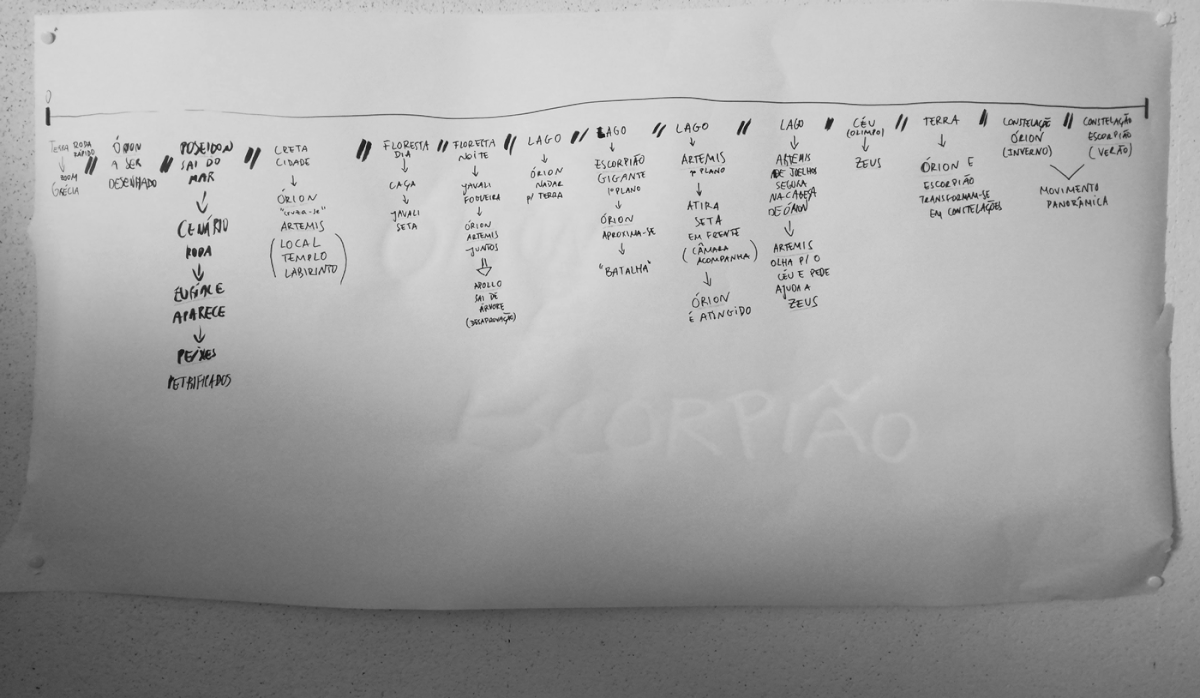 0
TERRA RODA
RÁPIDO
ZOOM
GRÉCIA
ÓRION
A SER
DESENHADO
POSEIDON
SAI DO
MAR
CENÁRIO
RODA
APARECE
PEIXES
PETRIFICADOS
CRETA
CIDADE
ÓRION
ARTEMIS
(LOCAL
TEMPLO
LABIRINTO)
FLORESTA
DIA
CAÇA
JAVALI
SETA
FLORESTA
NOITE
JAVALI
FOGUEIRA
ÓRION
ARTEMIS
JUNTOS
APOLLO
SAI DE
ÁRVORE
(DESAPROVAÇÃO)
LAGO
ÓRION
NADAR
P/ TERRA
LAGO
ESCORPIÃO
GIGANTE
1º PLANO
ÓRION
APROXIMA-SE
"BATALHA"
LAGO
ARTEMIS
1º PLANO
ATIRA
SETA
EM FRENTE
(CÂMARA
ACOMPANHA)
ÓRION
É ATINGIDO
LAGO
ARTEMIS
DE JOELHOS
SEGURA
NA CABEÇA
DE ÓRION
ARTEMIS
OLHA P/ O
CÉU E PEDE
AJUDA A
ZEUS
CÉU
(OLIMPO)
ZEUS
TERRA
ÓRION E
ESCORPIÃO
TRANSFORMAM-SE
EM CONSTELAÇÕES
CONSTELAÇÃO
ÓRION
(INVERNO)
CONSTELAÇÃO
ESCORPIÃO
(VERÃO)
MOVIMENTO
PANORÂMICA
ESCORPIÃO